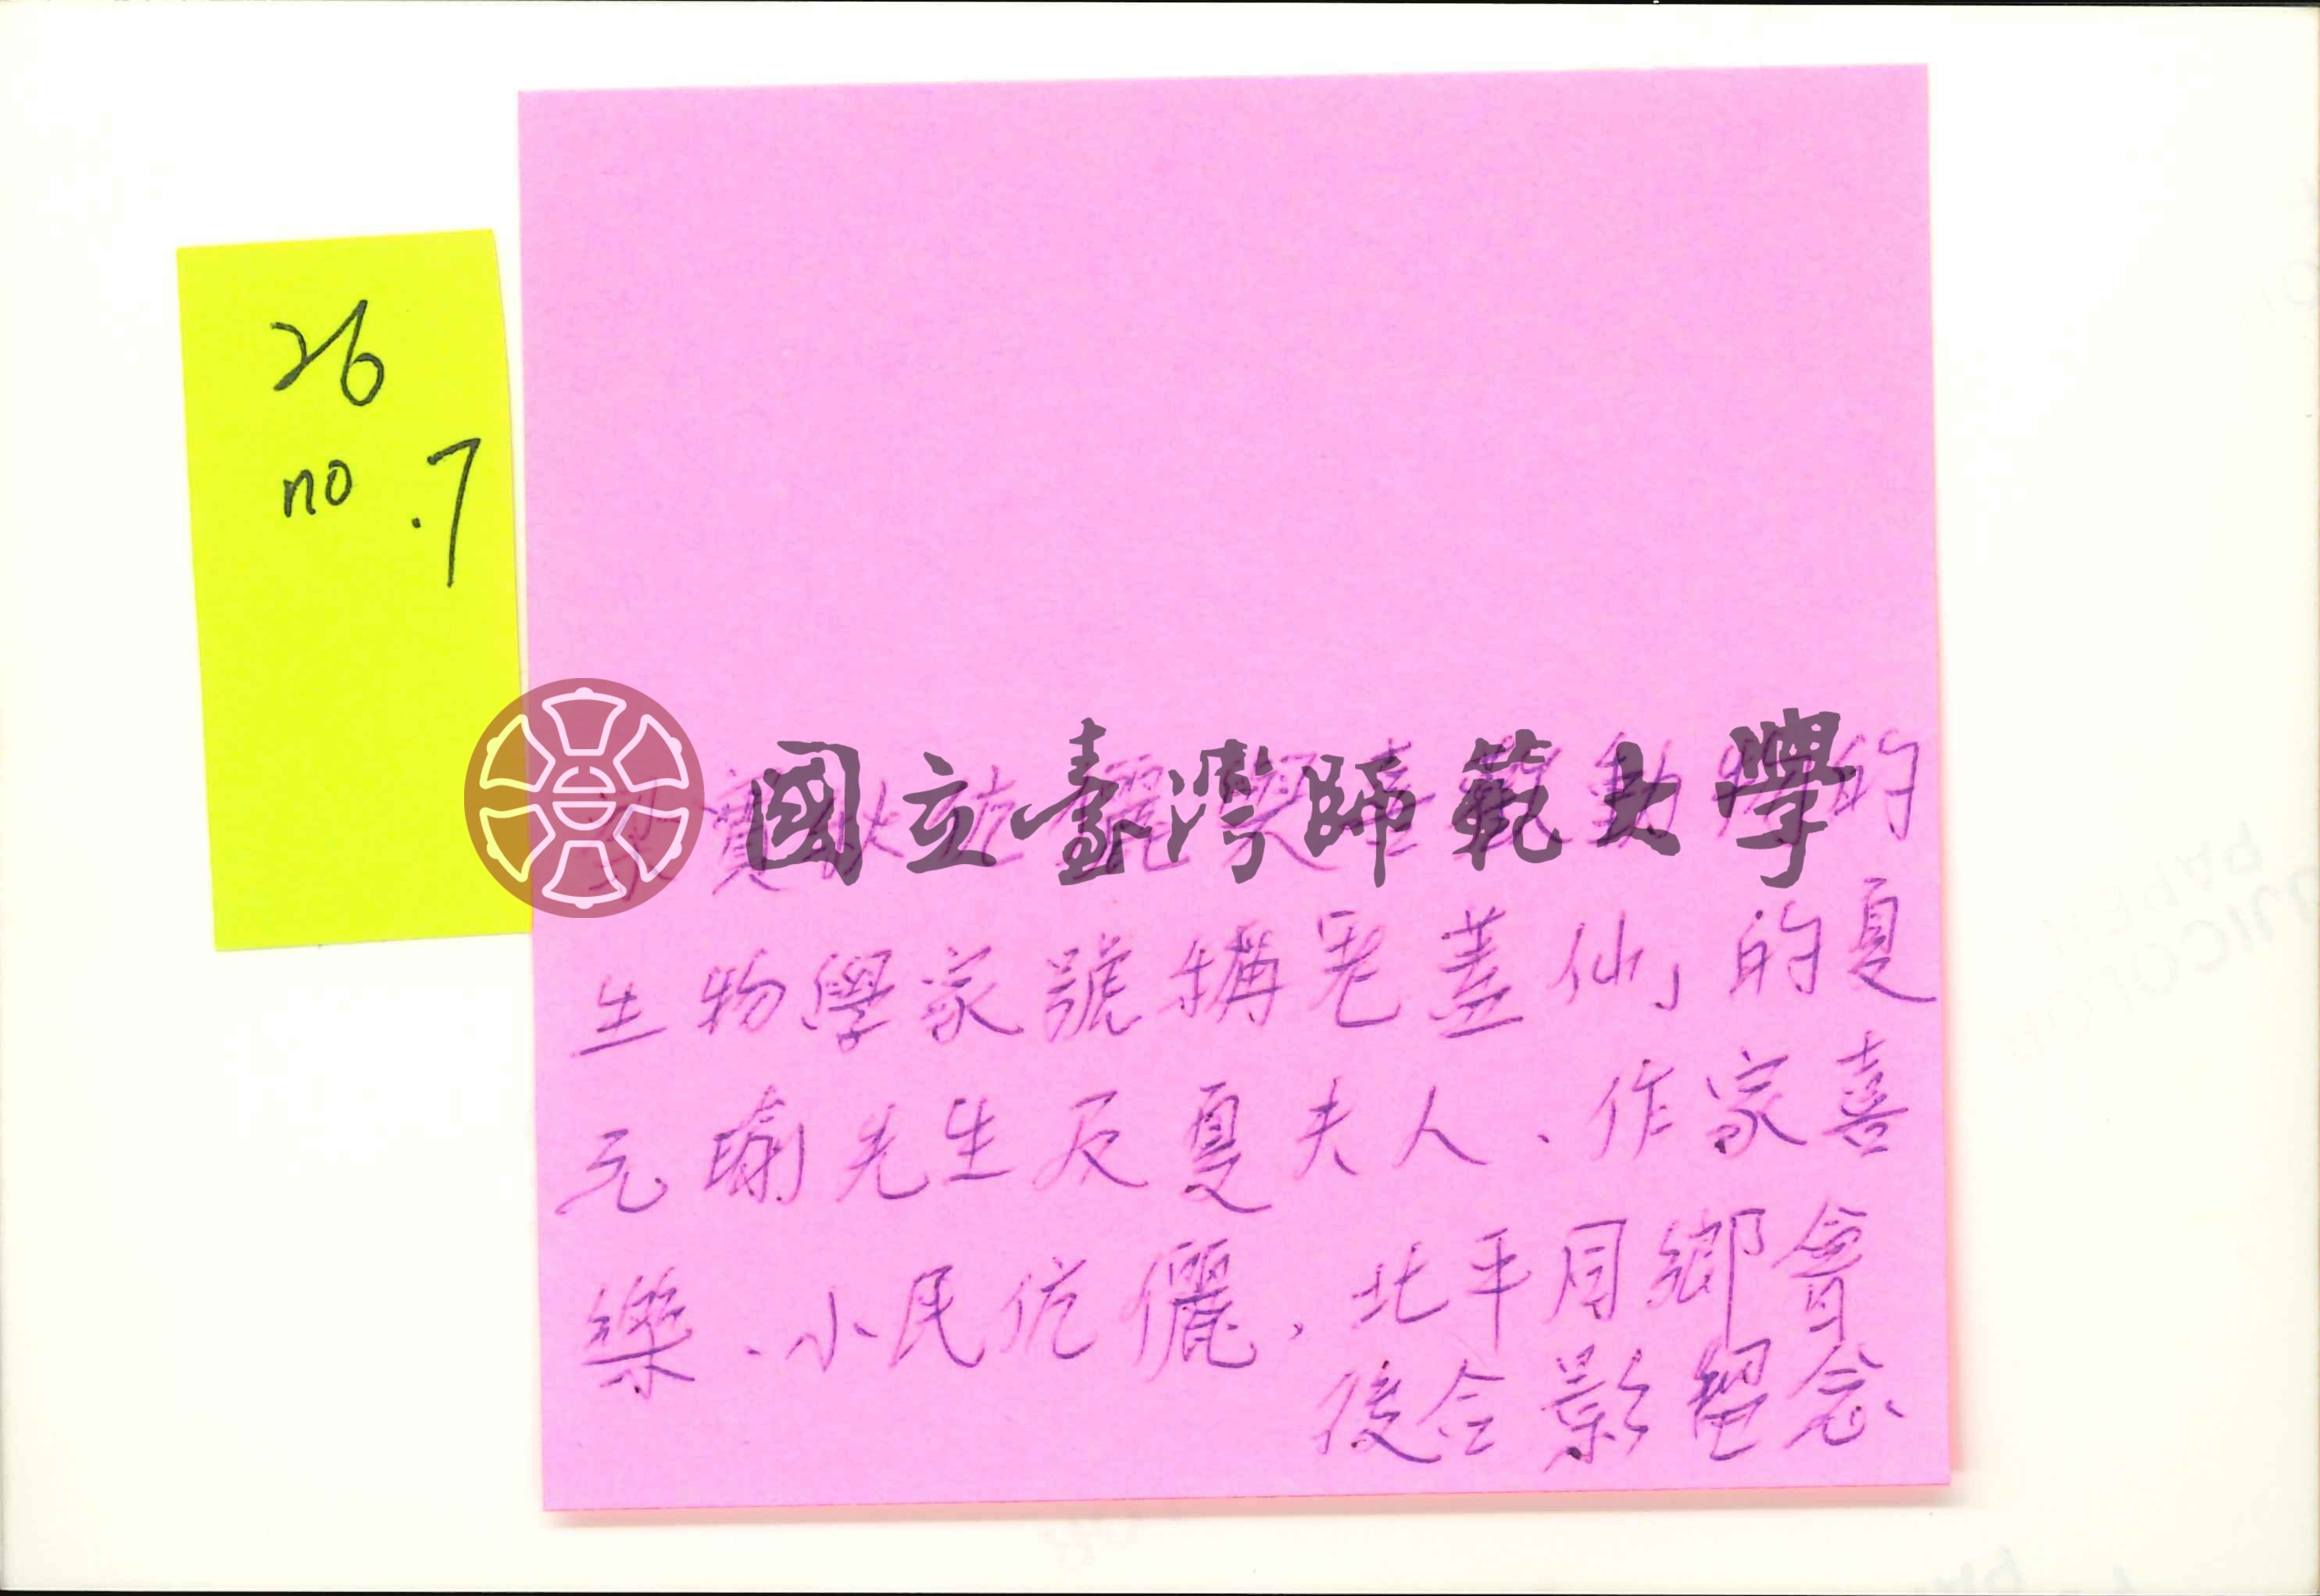 26
no.7
國立臺灣師範大學
梁實秋伉儷與 動物的
生物學家號稱老蓋仙」的夏
元瑜先生及夏夫人、作家喜
樂、小民伉儷、北平同鄉會
後合影留念、